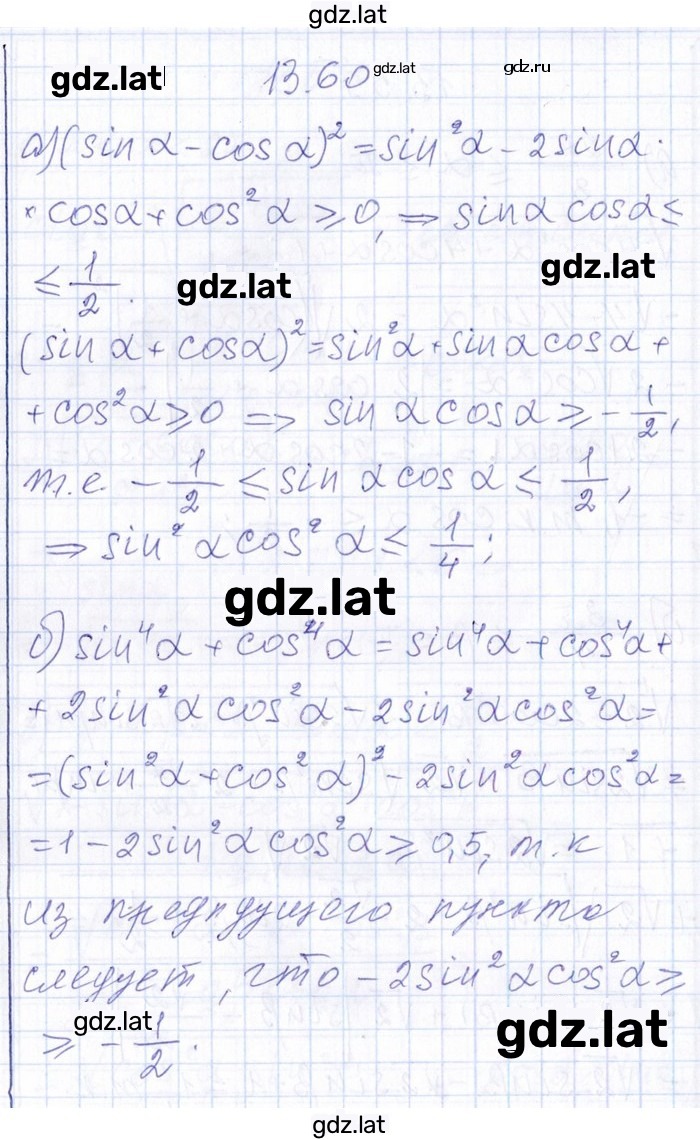 gdz.lat
gdz.lat 13.60 gdz.lat gdz.ru
а) (sin α - cos α)² = sin²α - 2sinα ·
· cosα + cos²α ⩾ 0, ⇒ sinα cosα ≤
≤ 1/2. gdz.lat gdz.lat
(sin α + cosα)² = sin²α + sinα cosα +
+ cos²α ⩾ 0 ⇒ sin α cosα ⩾ - 1/2,
т.е. - 1/2 ≤ sin α cos α ≤ 1/2,
⇒ sin²α cos²α ≤ 1/4;
gdz.lat
б) sin⁴α + cos⁴α = sin⁴α + cos⁴α +
+ 2sin²α cos²α - 2sin²α cos²α =
= (sin²α + cos²α)² - 2sin²α cos²α =
= 1 - 2sin²α cos²α ⩾ 0,5, т.к
из предыдущего пункта
следует, что - 2sin²α cos²α ⩾
⩾ - 1/2. gdz.lat gdz.lat
gdz.lat